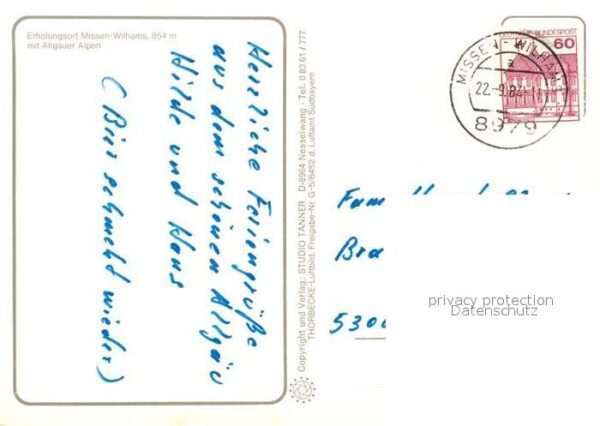 Erholungsort Missen-Wilhams, 854 m
mit Allgäuer Alpen
Herzliche Feriengrüße
aus dem schönen Allgäu
Hilde und Hans
(Bier schmeckt wieder)
Copyright und Verlag: STUDIO TANNER D-8964 Nesselwang - Tel. 0 83 61 / 777
THORBECKE-Luftbild, Freigabe-Nr. G-5/6452 d. Luftamt Südbayern
DEUTSCHE BUNDESPOST
60
MISSEN-WILHAMS
a
8979
Fam
530
privacy protection
Datenschutz